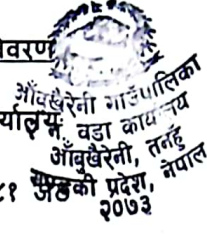 वरण
आँबुखैरेनी गाउँपालिका
र्यालय, वडा कार्यालय
आँबुखैरेनी, तनहुँ
८१ गण्डकी प्रदेश, नेपाल
२०७३